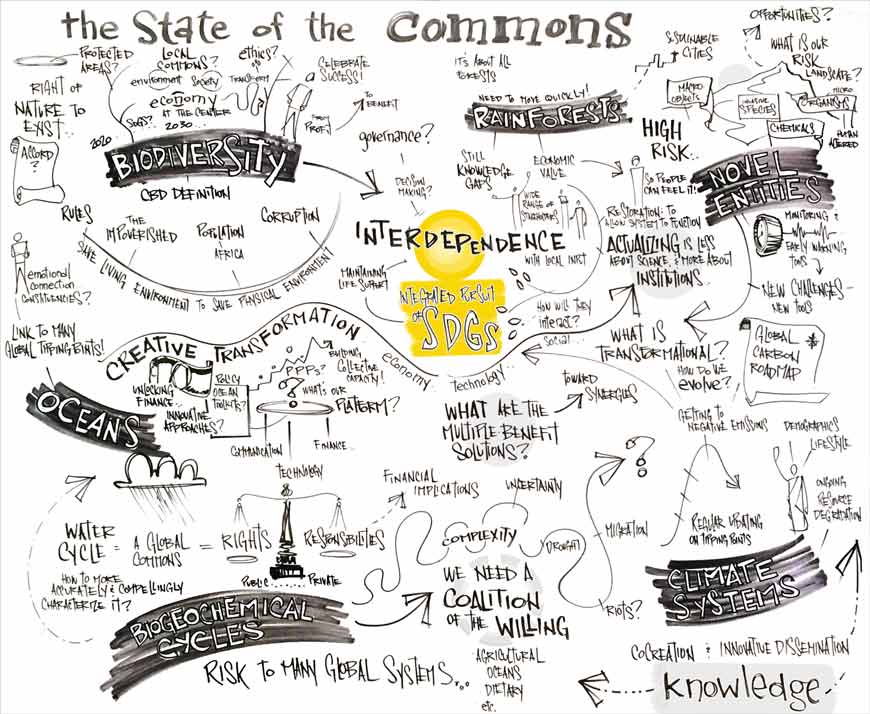 the State of the Commons
PROTECTED
AREAS?
LOCAL
COMMONS?
ethics?
CELEBRATE
SUCCESS!
environment
Society
TRANSFORM
economy
AT THE CENTER
SDGs?
2030
2020
FROM
PROFIT
TO
BENEFIT
RIGHT OF
NATURE TO
EXIST...
ACCORD?
BIODIVERSITY
CBD DEFINITION
RULES
THE
IMPOVERISHED
POPULATION
AFRICA
CORRUPTION
SAVE LIVING ENVIRONMENT TO SAVE PHYSICAL ENVIRONMENT
emotional
connection
CONSTITUENCIES?
LINK TO MANY
GLOBAL TIPPING POINTS!
governance?
DECISION
MAKING?
IT'S ABOUT ALL
FORESTS
NEED TO MOVE QUICKLY!
RAINFORESTS
STILL
KNOWLEDGE
GAPS
ECONOMIC
VALUE
WIDE
RANGE OF
STAKEHOLDERS
WITH LOCAL INPUT
SUSTAINABLE
CITIES
OPPORTUNITIES?
WHAT IS OUR
RISK
LANDSCAPE?
MACRO
OBJECTS
INVASIVE
SPECIES
MICRO
ORGANISMS
CHEMICALS
HUMAN
ALTERED
HIGH
RISK...
SO PEOPLE
CAN FEEL IT!
NOVEL
ENTITIES
MONITORING &
EARLY WARNING
TOOLS
NEW CHALLENGES
NEW TOOLS
RESTORATION: TO
ALLOW SYSTEM TO FUNCTION
ACTUALIZING IS LESS
ABOUT SCIENCE, & MORE ABOUT
INSTITUTIONS
INTERDEPENDENCE
MAINTAINING
LIFE SUPPORT
INTEGRATED PURSUIT
OF SDGs
HOW WILL THEY
interact?
SOCIAL
economy...
technology...
WHAT IS
TRANSFORMATIONAL?
HOW DO WE
evolve?
GLOBAL
CARBON
ROADMAP
CREATIVE TRANSFORMATION
OCEANS
UNLOCKING
FINANCE...
INNOVATIVE
APPROACHES?
POLICY
OCEAN
TOOLKITS?
PPPs?
BUILDING
COLLECTIVE
CAPACITY!
WHAT'S OUR
PLATFORM?
COMMUNICATION
TECHNOLOGY
FINANCE...
WHAT ARE THE
MULTIPLE BENEFIT
SOLUTIONS?
TOWARD
SYNERGIES
GETTING TO
NEGATIVE EMISSIONS
DEMOGRAPHICS
LIFESTYLE
ONGOING
RESOURCE
DEGRADATION
REGULAR UPDATING
ON TIPPING POINTS
CLIMATE
SYSTEMS
WATER
CYCLE = A GLOBAL
COMMONS = RIGHTS
RESPONSIBILITIES
HOW TO MORE
ACCURATELY & COMPELLINGLY
CHARACTERIZE IT?
PUBLIC...PRIVATE
FINANCIAL
IMPLICATIONS
UNCERTAINTY
COMPLEXITY
DROUGHT
MIGRATION
RIOTS?
BIOGEOCHEMICAL
CYCLES
RISK TO MANY GLOBAL SYSTEMS...
WE NEED A
COALITION
OF THE WILLING
AGRICULTURAL
OCEANS
DIETARY
etc.
COCREATION & INNOVATIVE DISSEMINATION
knowledge